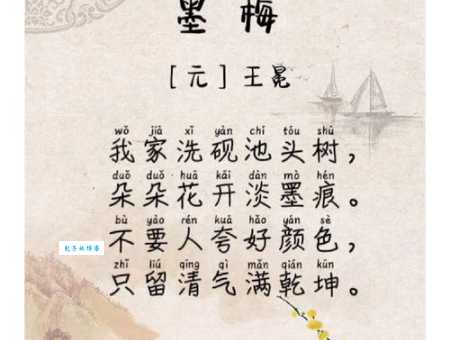 墨梅
[元]王冕
wǒ jiā xǐ yàn chí tóu shù
我家洗砚池头树，
duǒ duǒ huā kāi dàn mò hén
朵朵花开淡墨痕。
bù yào rén kuā hǎo yán sè
不要人夸好颜色，
zhǐ liú qīng qì mǎn qián kūn
只留清气满乾坤。